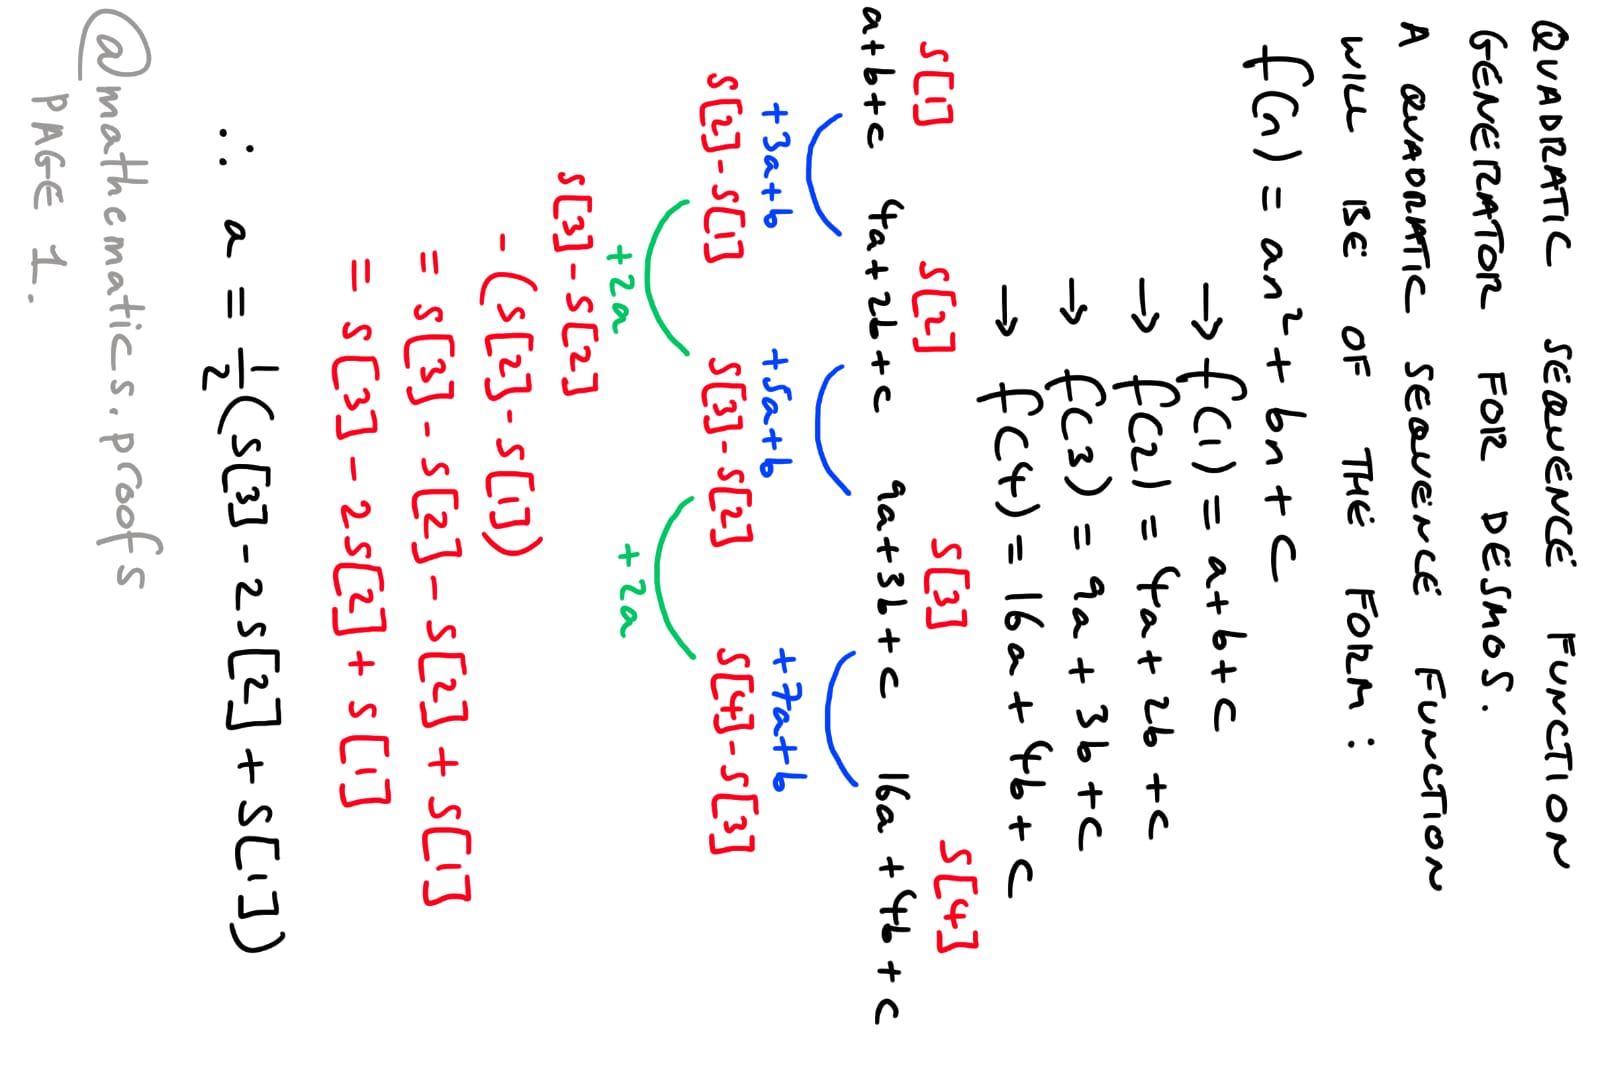 QUADRATIC SEQUENCE FUNCTION
GENERATOR FOR DESMOS.
A QUADRATIC SEQUENCE FUNCTION
WILL BE OF THE FORM:
f(n) = an² + bn + c
→ f(1) = a+b+c
→ f(2) = 4a + 2b + c
→ f(3) = 9a + 3b + c
→ f(4) = 16a + 4b + c
S[1] S[2] S[3] S[4]
a+b+c 4a+2b+c 9a+3b+c 16a+4b+c
+3a+b +5a+b +7a+b
S[2]-S[1] S[3]-S[2] S[4]-S[3]
+2a +2a
S[3]-S[2]
-(S[2]-S[1])
= S[3]-S[2]-S[2]+S[1]
= S[3]-2S[2]+S[1]
∴ a = ½(S[3]-2S[2]+S[1])
@mathematics.proofs
PAGE 1.